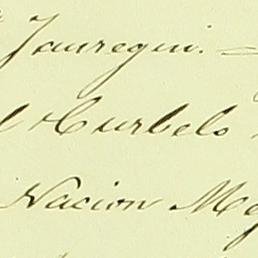 Jauregui. —
l Curbelo
Nacion Me